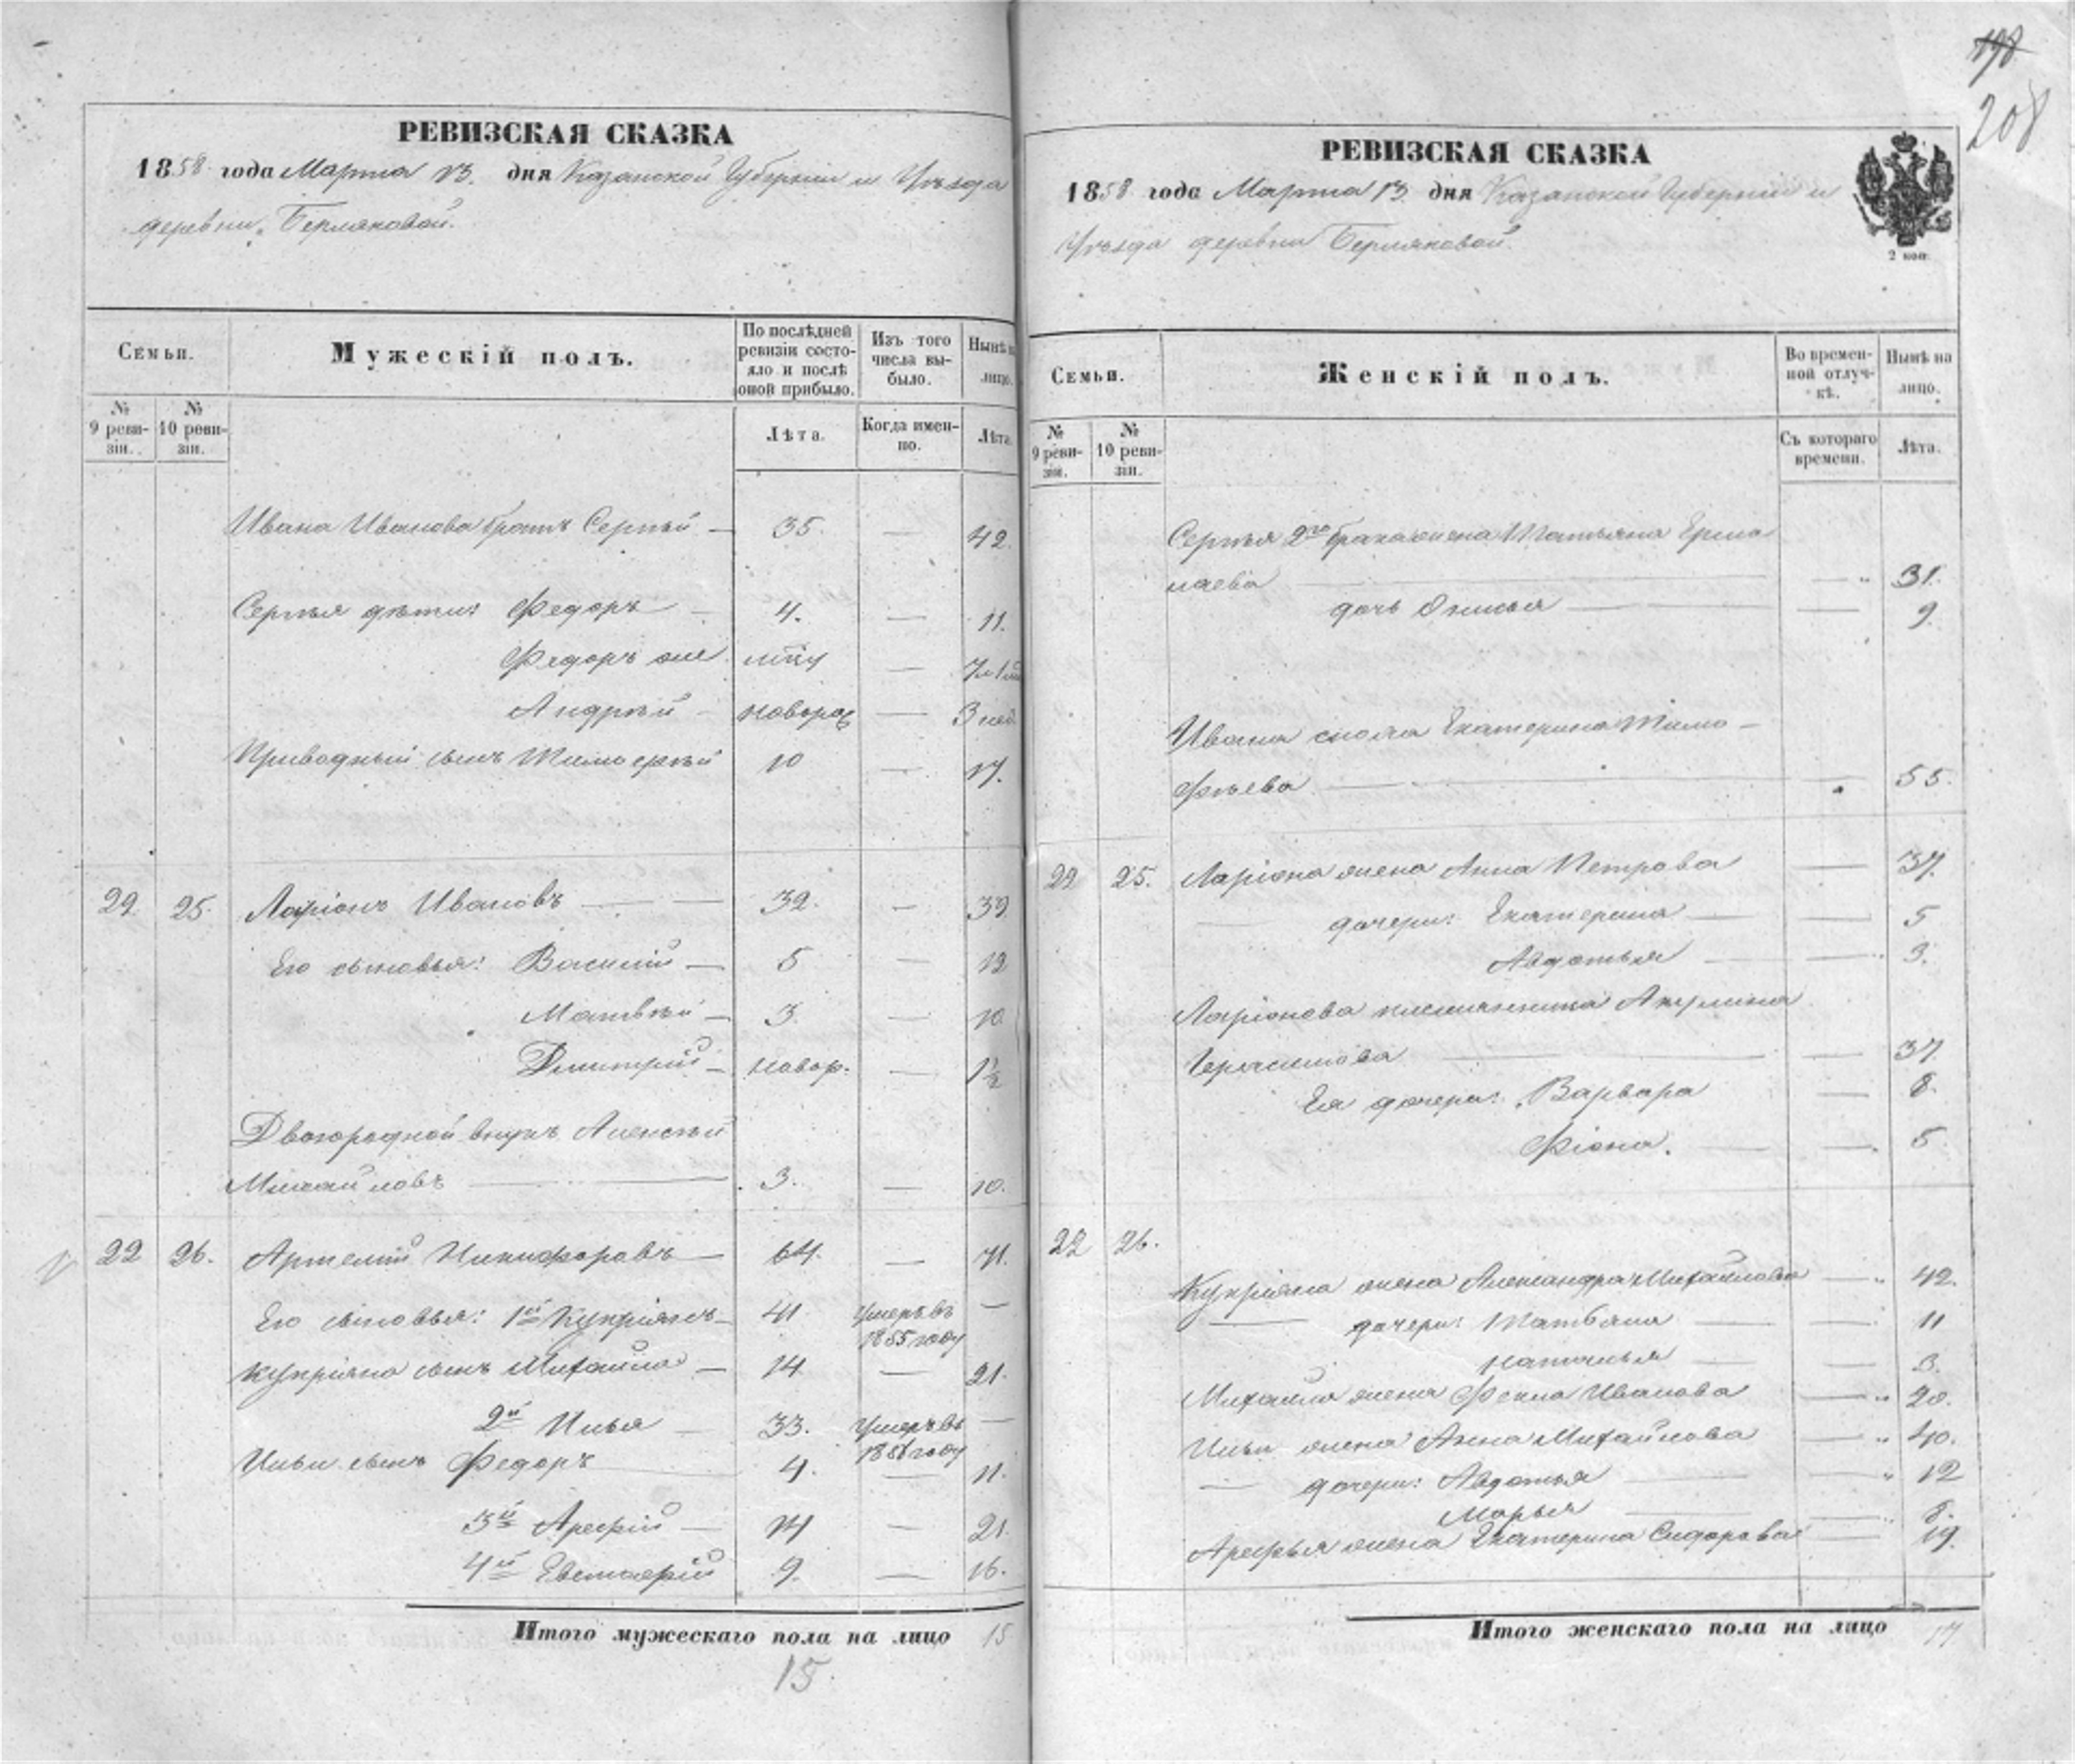 198
208
РЕВИЗСКАЯ СКАЗКА
1858 года Марта 13. дня Казанской Губернии и Уѣзда
деревни Берляковой.
Семьи.
Мужескій полъ.
По послѣдней ревизіи состояло и послѣ оной прибыло.
Изъ того числа выбыло.
Нынѣ на лицо.
№ 9 ревизіи.
№ 10 ревизіи.
Лѣта.
Когда именно.
Лѣта.
Ивана Иванова братъ Сергѣй — 35. — 42.
Сергѣя дѣти: Федоръ — 4. — 11.
Федоръ же —
Андрей — новорож — 3 нед.
Приводный сынъ Тимофей 10 — 17.
22 25. Ларіонъ Ивановъ — 32. — 39
Его сыновья: Василій — 5 — 12
Матвѣй — 3. — 10
Дмитрій — новор. — 1½
Двоюродной внукъ Алексѣй
Михайловъ — 3. — 10.
22 26. Артемій Никифоровъ — 64. — 71.
Его сыновья: 1й Купріянъ — 41. Умеръ въ 1855 году —
Купріяна сынъ Михайла — 14 — 21.
2й Илья — 33. Умеръ въ 1856 году —
Ильи сынъ Федоръ — 4. — 11.
3й Арефій — 14 — 21.
4й Евстафій 9. — 16.
Итого мужескаго пола на лицо 15
15.
РЕВИЗСКАЯ СКАЗКА
1858 года Марта 13 дня Казанской Губерніи и
Уѣзда деревни Берляковой.
2 коп.
Семьи.
Женскій полъ.
Во временной отлучкѣ.
Нынѣ на лицо.
№ 9 ревизіи.
№ 10 ревизіи.
Съ котораго времени.
Лѣта.
Сергѣя 2го брака жена Татьяна Ермо
лаева — — 31.
дочь — — 9.
Ивана жена Екатерина Тимо —
фѣева — 55.
22 25. Ларіона жена Анна Петрова — 37.
дочери: Екатерина — — 5
Авдотья — — 3.
Ларіонова племянница Акулина
Герасимова — — 37.
Ея дочери: Варвара — 8.
Фіона. — — 5.
22 26.
Купріяна жена Александра Михайлова — 42.
— дочери: Татьяна — — 11
Наталья — — 3.
Михайла жена Фекла Иванова — 20.
Ильи жена Анна Михайлова — 40.
— дочери: Авдотья — — 12
Марья — — 8.
Арефья жена Екатерина Сидорова — 19.
Итого женскаго пола на лицо 17